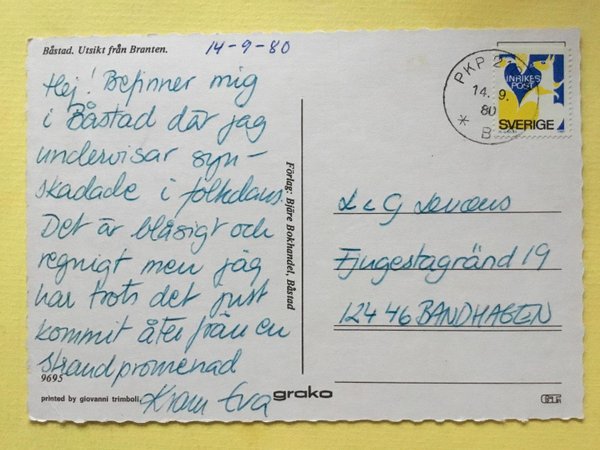 Båstad. Utsikt från Branten.
14-9-80
Hej! Befinner mig
i Båstad där jag
undervisar syn-
skadade i folkdans.
Det är blåsigt och
regnigt men jag
har trots det just
kommit åter från en
strandpromenad
Kram Eva
9695
printed by giovanni trimboli
grako
Förlag: Bjäre Bokhandel, Båstad
PKP 2
14. 9.
80
* B
INRIKES
POST
SVERIGE
L & G
Fjugestagränd 19
124 46 BANDHAGEN